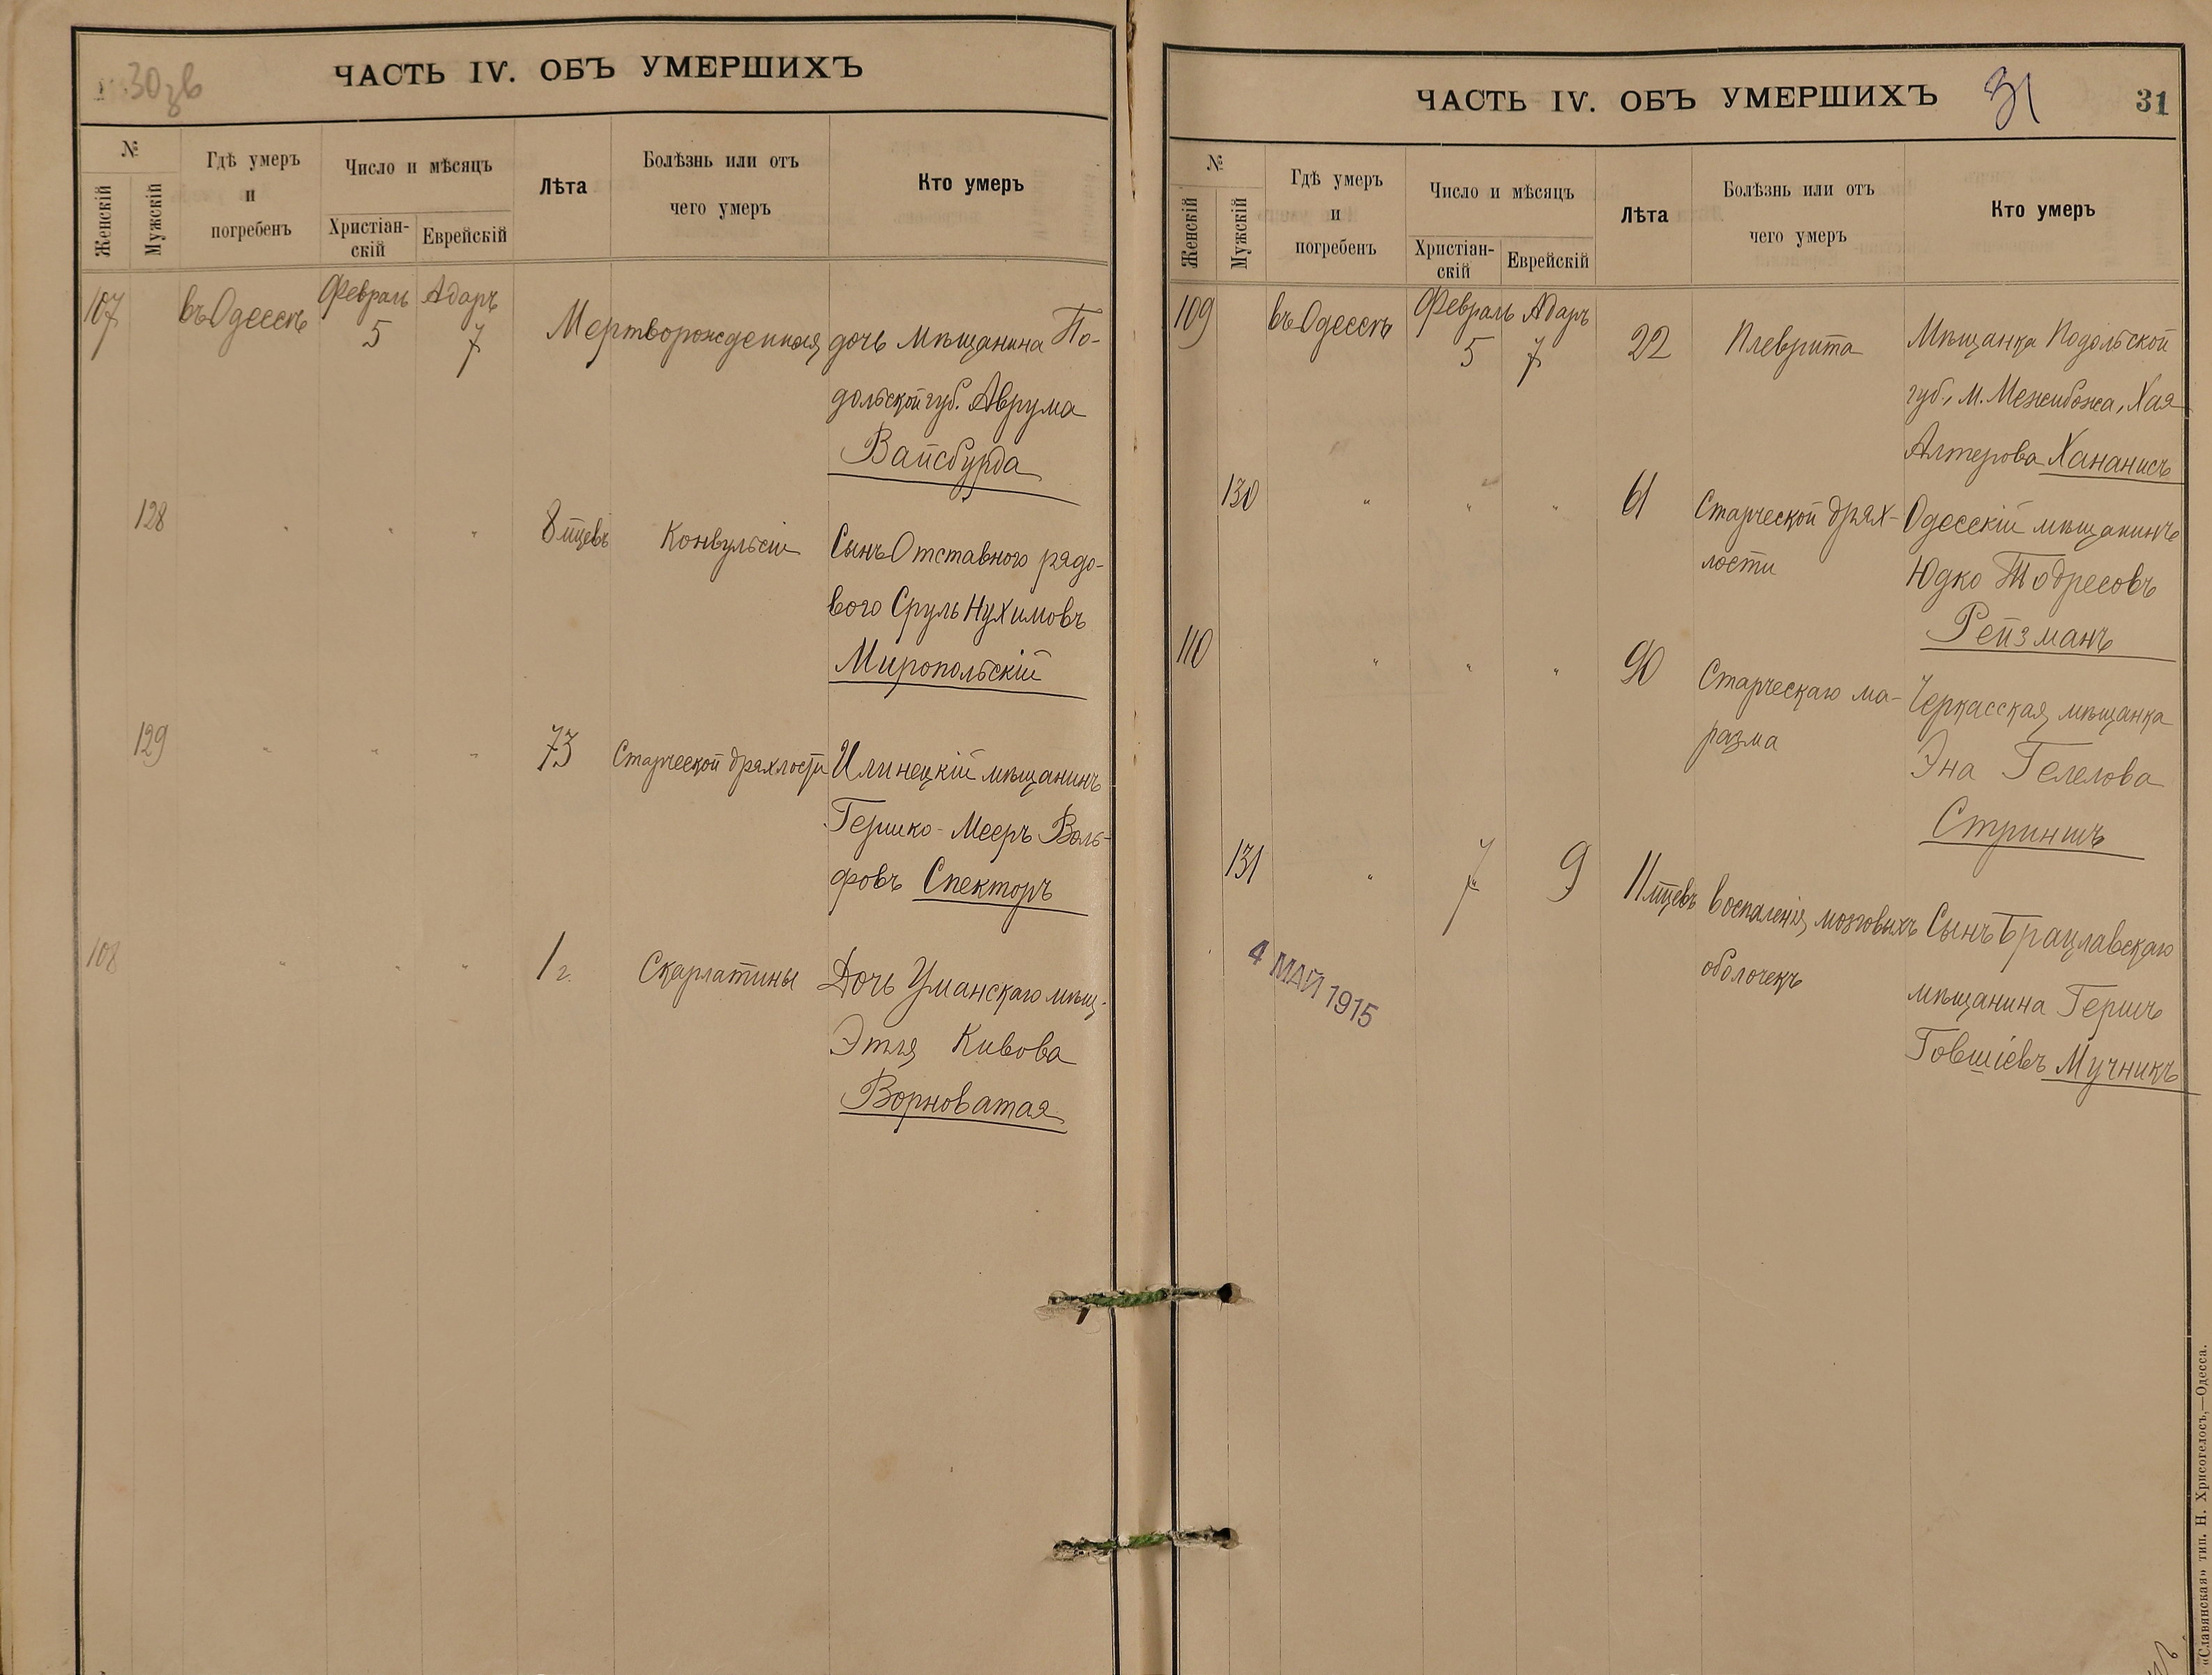 30 зв
ЧАСТЬ IV. ОБЪ УМЕРШИХЪ
№
Женскій
Мужскій
Гдѣ умеръ
и
погребенъ
Число и мѣсяцъ
Христіан-
скій
Еврейскій
Лѣта
Болѣзнь или отъ
чего умеръ
Кто умеръ
107 въ Одессѣ Февраль 5 Адаръ 7 Мертворожденная дочь мѣщанина По-
дольской губ. Аврума
Вайсбурда
128 " " " 8 мцевъ Конвульсіи Сынъ Отставного рядо-
вого Сруль Нухимовъ
Миропольскій
129 " " " 73 Старческой дряхлости Илинецкій мѣщанинъ
Гершко-Мееръ Воль-
фовъ Спекторъ
108 " " " 1 г. Скарлатины Дочь Уманскаго мѣщ.
Этля Кивова
Ворноватая
ЧАСТЬ IV. ОБЪ УМЕРШИХЪ 31 31
№
Женскій
Мужскій
Гдѣ умеръ
и
погребенъ
Число и мѣсяцъ
Христіан-
скій
Еврейскій
Лѣта
Болѣзнь или отъ
чего умеръ
Кто умеръ
109 въ Одессѣ Февраль 5 Адаръ 7 22 Плеврита Мѣщанка Подольской
губ., м. Межибожа, Хая
Алтерова Хананисъ
130 " " " 61 Старческой дрях- Одесскій мѣщанинъ
лости Юдко Тодресовъ
Рейзманъ
110 " " " 90 Старческаго ма- Черкасская мѣщанка
разма Эна Гелелова
Стриншъ
131 " 7 9 11 мцевъ воспаленія мозговыхъ Сынъ Брацлавскаго
оболочекъ мѣщанина Гершъ
Говшіевъ Мучникъ
4 МАЙ 1915
«Славянская» тип. Н. Хрисогелосъ,—Одесса.